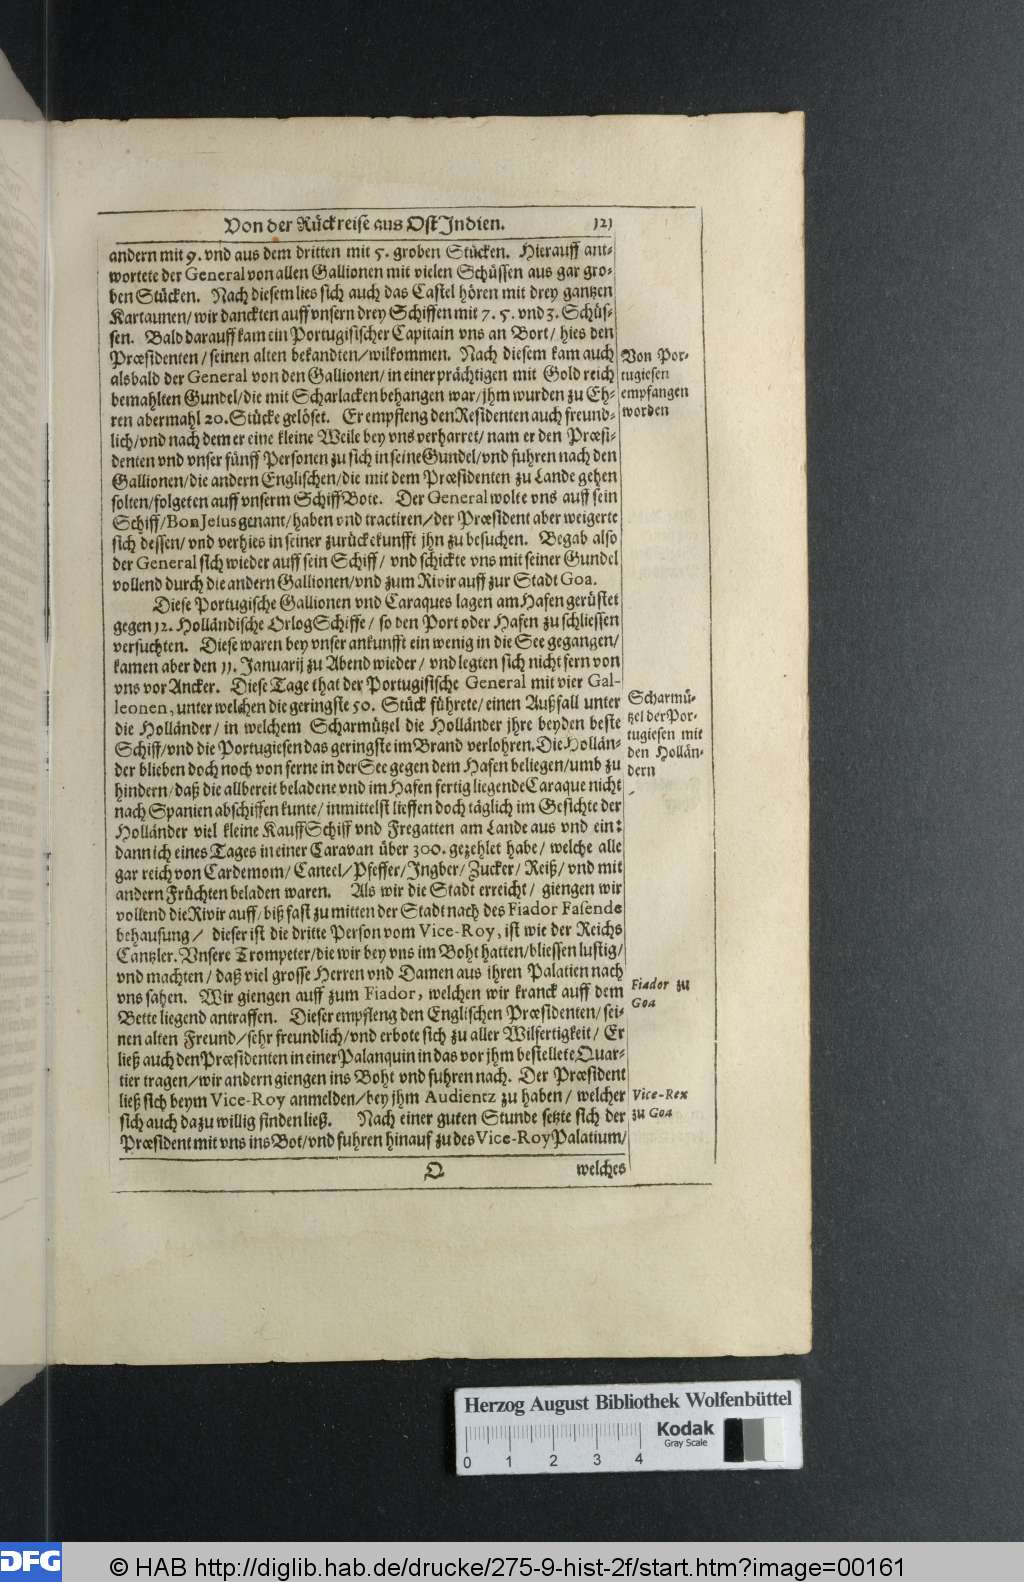 Von der Rückreise aus Ost Indien. 121
andern mit 9. vnd aus dem dritten mit 5. groben Stücken. Hierauff ant-
wortete der General von allen Gallionen mit vielen Schüssen aus gar gro-
ben Stücken. Nach diesem lies sich auch das Castel hören mit drey gantzen
Kartaunen/ wir danckten auff vnsern drey Schiffen mit 7. 5. vnd 3. Schüs-
sen. Bald darauff kam ein Portugisischer Capitain vns an Bort/ hies den
Præsidenten/ seinen alten bekandten/ wilkommen. Nach diesem kam auch
alsbald der General von den Gallionen/ in einer prächtigen mit Gold reich
bemahlten Gundel/ die mit Scharlacken behangen war/ jhm wurden zu Eh-
ren abermahl 20. Stücke gelöset. Er empfieng den Residenten auch freund-
lich/ vnd nach dem er eine kleine Weile bey vns verharret/ nam er den Præsi-
denten vnd vnser fünff Personen zu sich in seine Gundel/ vnd fuhren nach den
Gallionen/ die andern Englischen/ die mit dem Præsidenten zu Lande gehen
solten/ folgeten auff vnserm Schiff Bote. Der General wolte vns auff sein
Schiff/ Bon Jesus genant/ haben vnd tractiren/ der Præsident aber weigerte
sich dessen/ vnd verhies in seiner zurückekunfft jhn zu besuchen. Begab also
der General sich wieder auff sein Schiff/ vnd schickte vns mit seiner Gundel
vollend durch die andern Gallionen/ vnd zum Rivir auff zur Stadt Goa.
Diese Portugische Gallionen vnd Caraques lagen am Hafen gerüstet
gegen 12. Holländische Orlog Schiffe/ so den Port oder Hafen zu schliessen
versuchten. Diese waren bey vnser ankunfft ein wenig in die See gegangen/
kamen aber den 11. Januarij zu Abend wieder/ vnd legten sich nicht fern von
vns vor Ancker. Diese Tage that der Portugisische General mit vier Gal-
leonen, unter welchen die geringste 50. Stück führete/ einen Außfall unter
die Holländer/ in welchem Scharmützel die Holländer jhre beyden beste
Schiff/ vnd die Portugiesen das geringste im Brand verlohren. Die Hollän-
der blieben doch noch von ferne in der See gegen dem Hafen beliegen/ umb zu
hindern/ daß die allbereit beladene vnd im Hafen fertig liegende Caraque nicht
nach Spanien abschiffen kunte/ inmittelst lieffen doch täglich im Gesichte der
Holländer viel kleine Kauff Schiff vnd Fregatten am Lande aus vnd ein:
dann ich eines Tages in einer Caravan über 300. gezehlet habe/ welche alle
gar reich von Cardemom/ Caneel/ Pfeffer/ Ingber/ Zucker/ Reiß/ vnd mit
andern Früchten beladen waren. Als wir die Stadt erreicht/ giengen wir
vollend die Rivir auff/ biß fast zu mitten der Stadt nach des Fiador Fasende
behausung/ dieser ist die dritte Person vom Vice-Roy, ist wie der Reichs
Cantzler. Vnsere Trompeter/ die wir bey vns im Boht hatten/ bliessen lustig/
vnd machten/ daß viel grosse Herren vnd Damen aus ihren Palatien nach
vns sahen. Wir giengen auff zum Fiador, welchen wir kranck auff dem
Bette liegend antraffen. Dieser empfieng den Englischen Præsidenten/ sei-
nen alten Freund/ sehr freundlich/ vnd erbote sich zu aller Wilfertigkeit/ Er
ließ auch den Præsidenten in einer Palanquin in das vor jhm bestellete Quar-
tier tragen/ wir andern giengen ins Boht vnd fuhren nach. Der Præsident
ließ sich beym Vice-Roy anmelden/ bey jhm Audientz zu haben/ welcher
sich auch dazu willig finden ließ. Nach einer guten Stunde setzte sich der
Præsident mit vns ins Bot/ vnd fuhren hinauf zu des Vice-Roy Palatium/
Q welches
Von Por-
tugiesen
empfangen
worden
Scharmü-
tzel der Por-
tugiesen mit
den Hollän-
dern
Fiador zu
Goa
Vice-Rex
zu Goa
Herzog August Bibliothek Wolfenbüttel
Kodak
Gray Scale
0 1 2 3 4
DFG © HAB http://diglib.hab.de/drucke/275-9-hist-2f/start.htm?image=00161